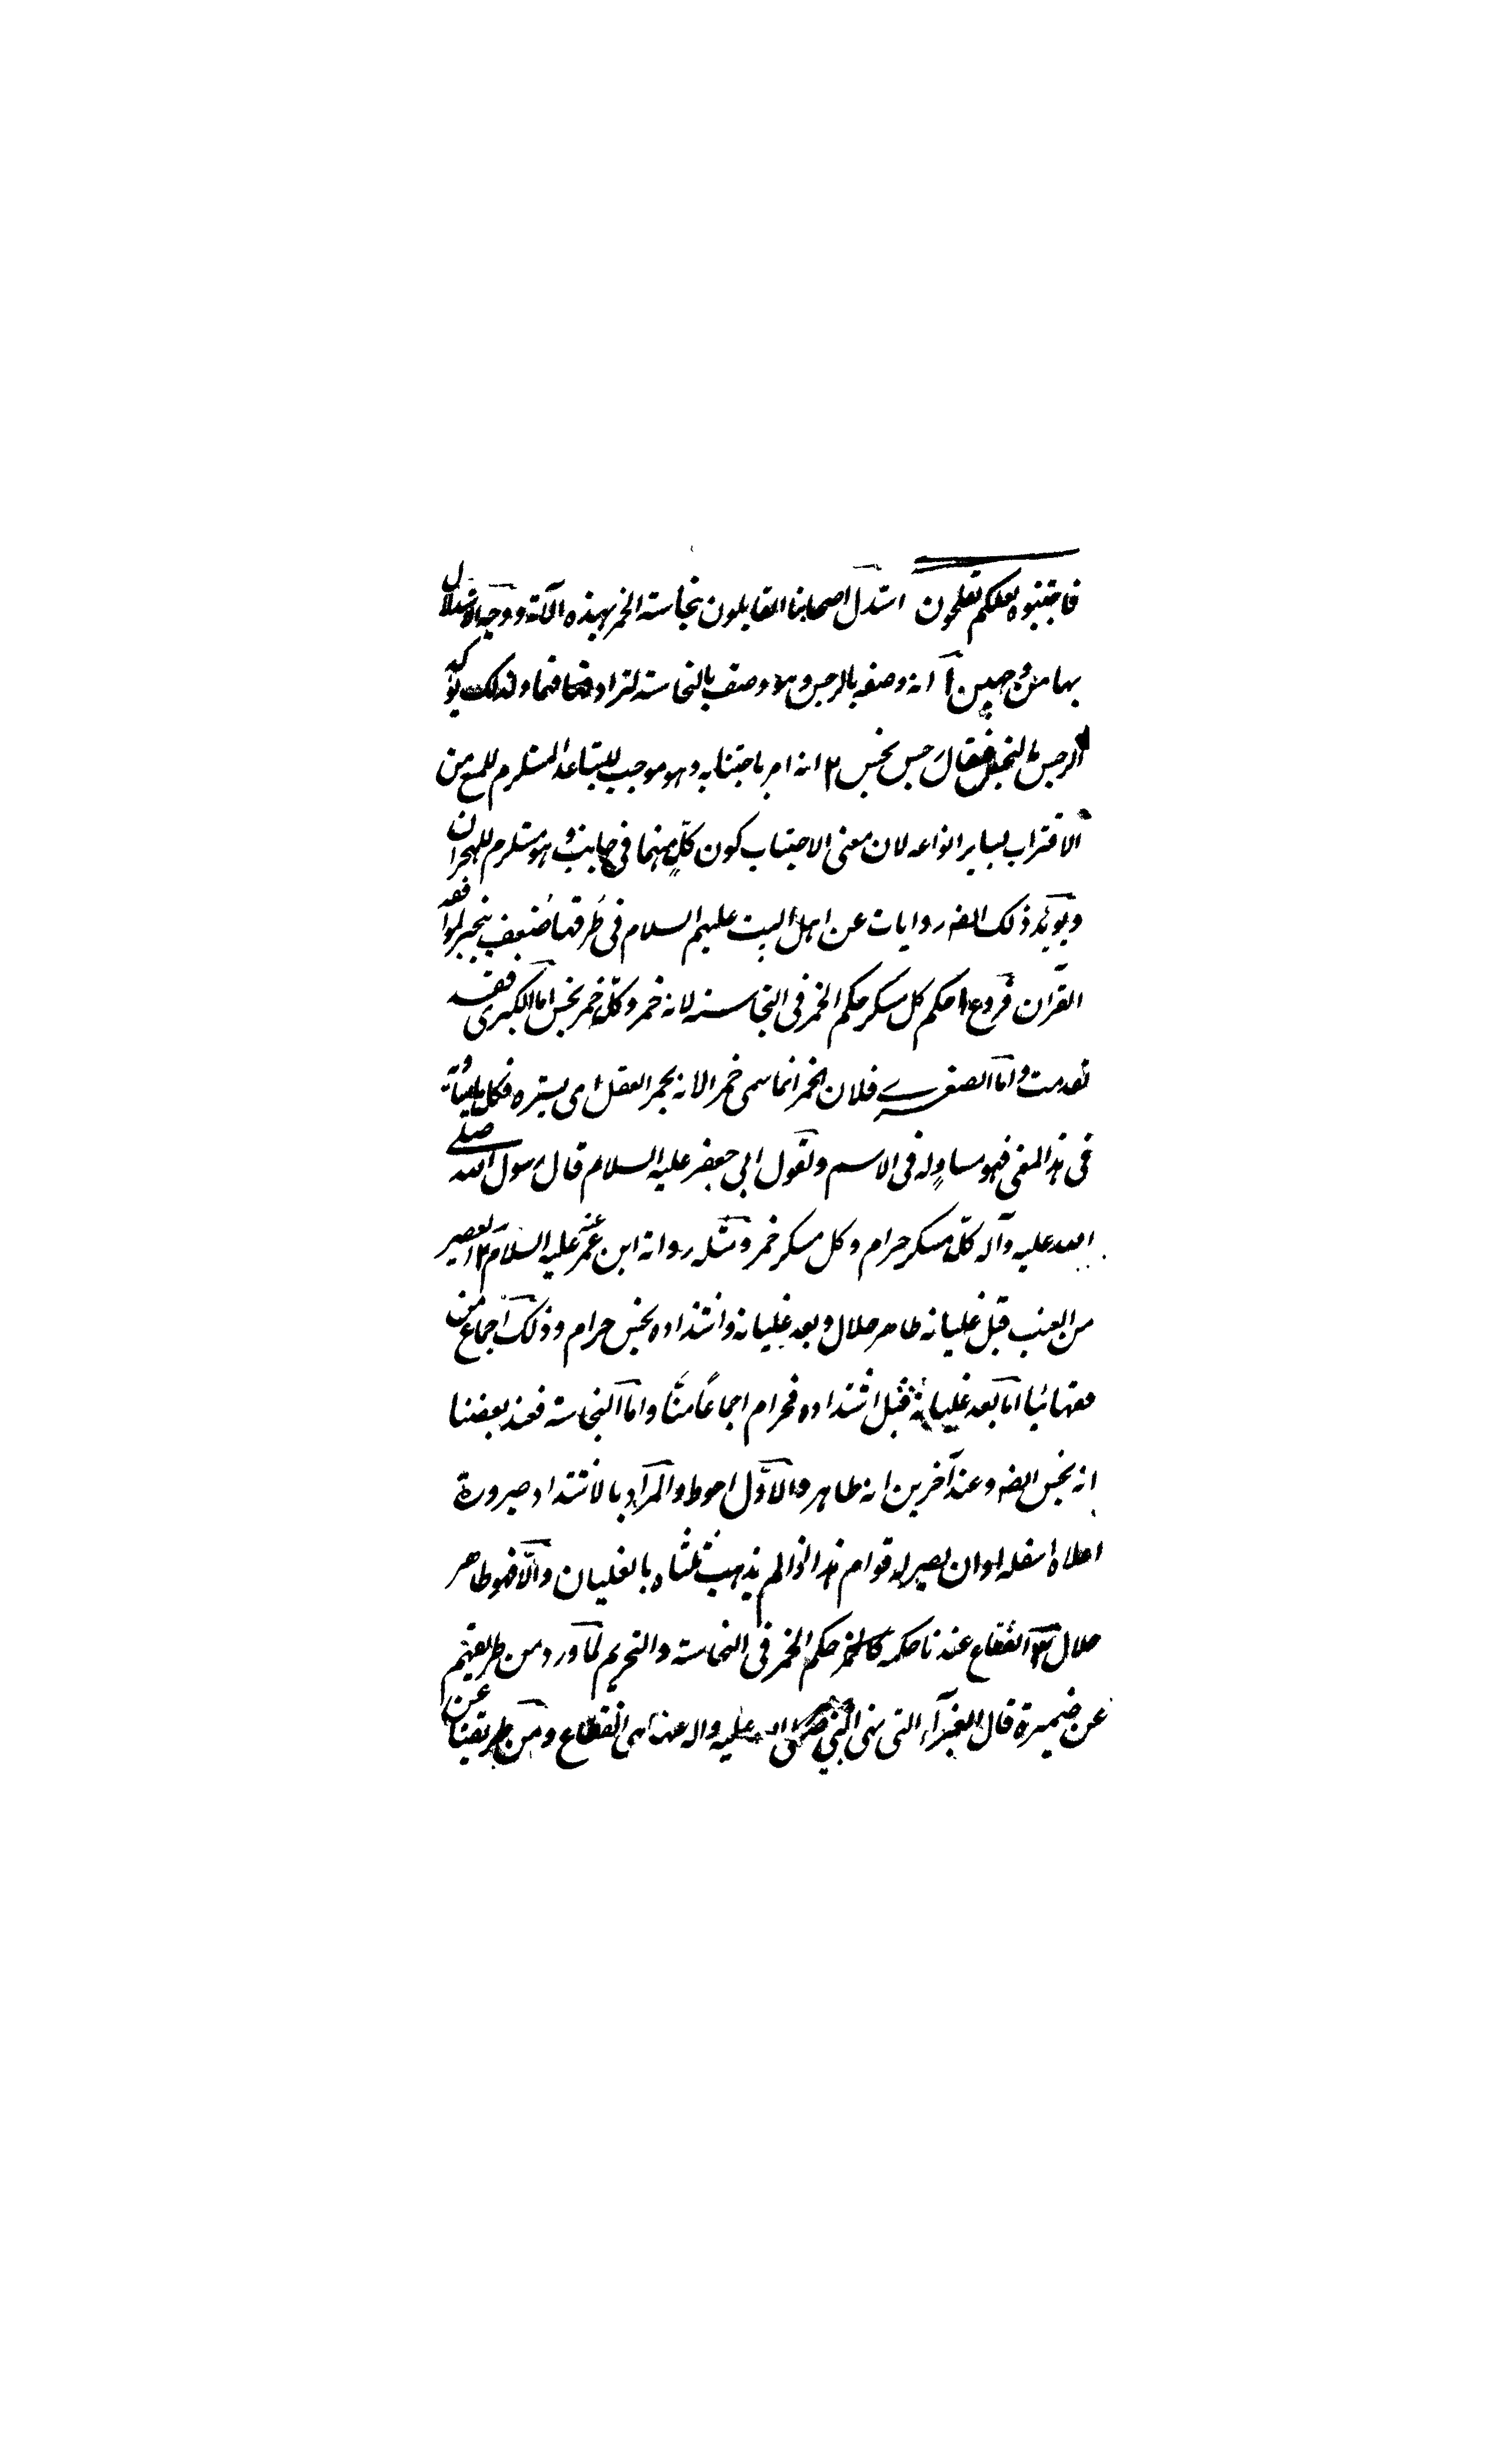 فاجتنبوه لعلكم تفلحون استدل اصحابنا القايلون بنجاسة الخمر بهذه الآية ووجه الاستدلال
بها من وجهين ١ انه وصفه بالرجس وهو وصف بالنجاسة لترادفهما ولذلك يؤكد
الرجس بالنجس فيقال رجس نجس ٢ انه امر باجتنابه وهو موجب للتباعد المستلزم للمنع من
الاقتراب بساير انواعه لان معنى الاجتناب كون كلٍّ منهما في جانب وهو مستلزم للهجران
ويؤيد ذلك ايضه روايات عن اهل البيت عليهم السلام في طرقها ضعف ينجبر لموافقة
القرآن فروع ١ حكم كل مسكر حكم الخمر في النجاسة لانه خمر وكل خمر نجس اما الكبرى فقد
تقدمت واما الصغرى فلان الخمر انما سمى خمرا لانه يخمر العقل اى يستره فكل ما يساويه
في هذا المعنى فهو مساوٍ له في الاسم ولقول ابي جعفر عليه السلام قال رسول الله صلى
الله عليه وآله كلّ مسكر حرام وكل مسكر خمر ومثله رواية ابن عمر عنه عليه السلام ٢ العصير
من العنب قبل غليانه طاهر حلال وبعد غليانه واشتداده نجس حرام وذلك اجماع من
فقهائنا اما بعد غليانه وقبل اشتداده فحرام اجماعًا منّا واما النجاسة فعند بعضنا
انه نجس ايضه وعند آخرين انه طاهر والاوّل احوط والمراد بالاشتداد صيرورة
اعلاه اسفله او ان يصير له قوام هذا اذا لم يذهب ثلثاه بالغليان والّا فهو طاهر
حلال ٣ الفقاع عندنا حكمه حكم الخمر في النجاسة والتحريم لما ورد من طريقهم
عن ضميرة قال الغبيرآء التى نهى النبي صلى الله عليه واله عنها هى الفقاع ومن طريقنا عن